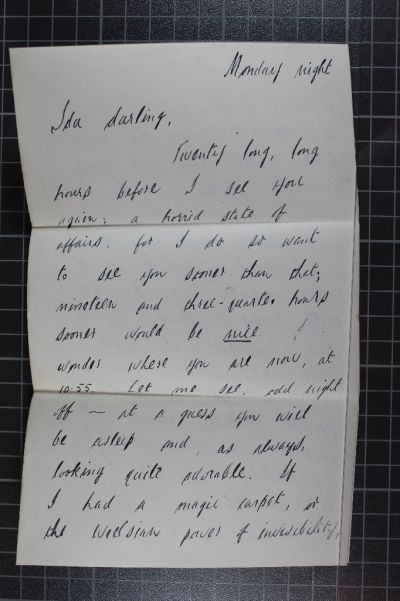 Monday night
Ida darling,
Twenty long, long
hours before I see you
again; a horrid state of
affairs. for I do so want
to see you sooner than that;
nineteen and three-quarter hours
sooner would be nice. I
wonder where you are now, at
10.55. Let me see, odd night
off — at a guess you will
be asleep and, as always,
looking quite adorable. If
I had a magic carpet, or
the Wellsian power of invisibility,